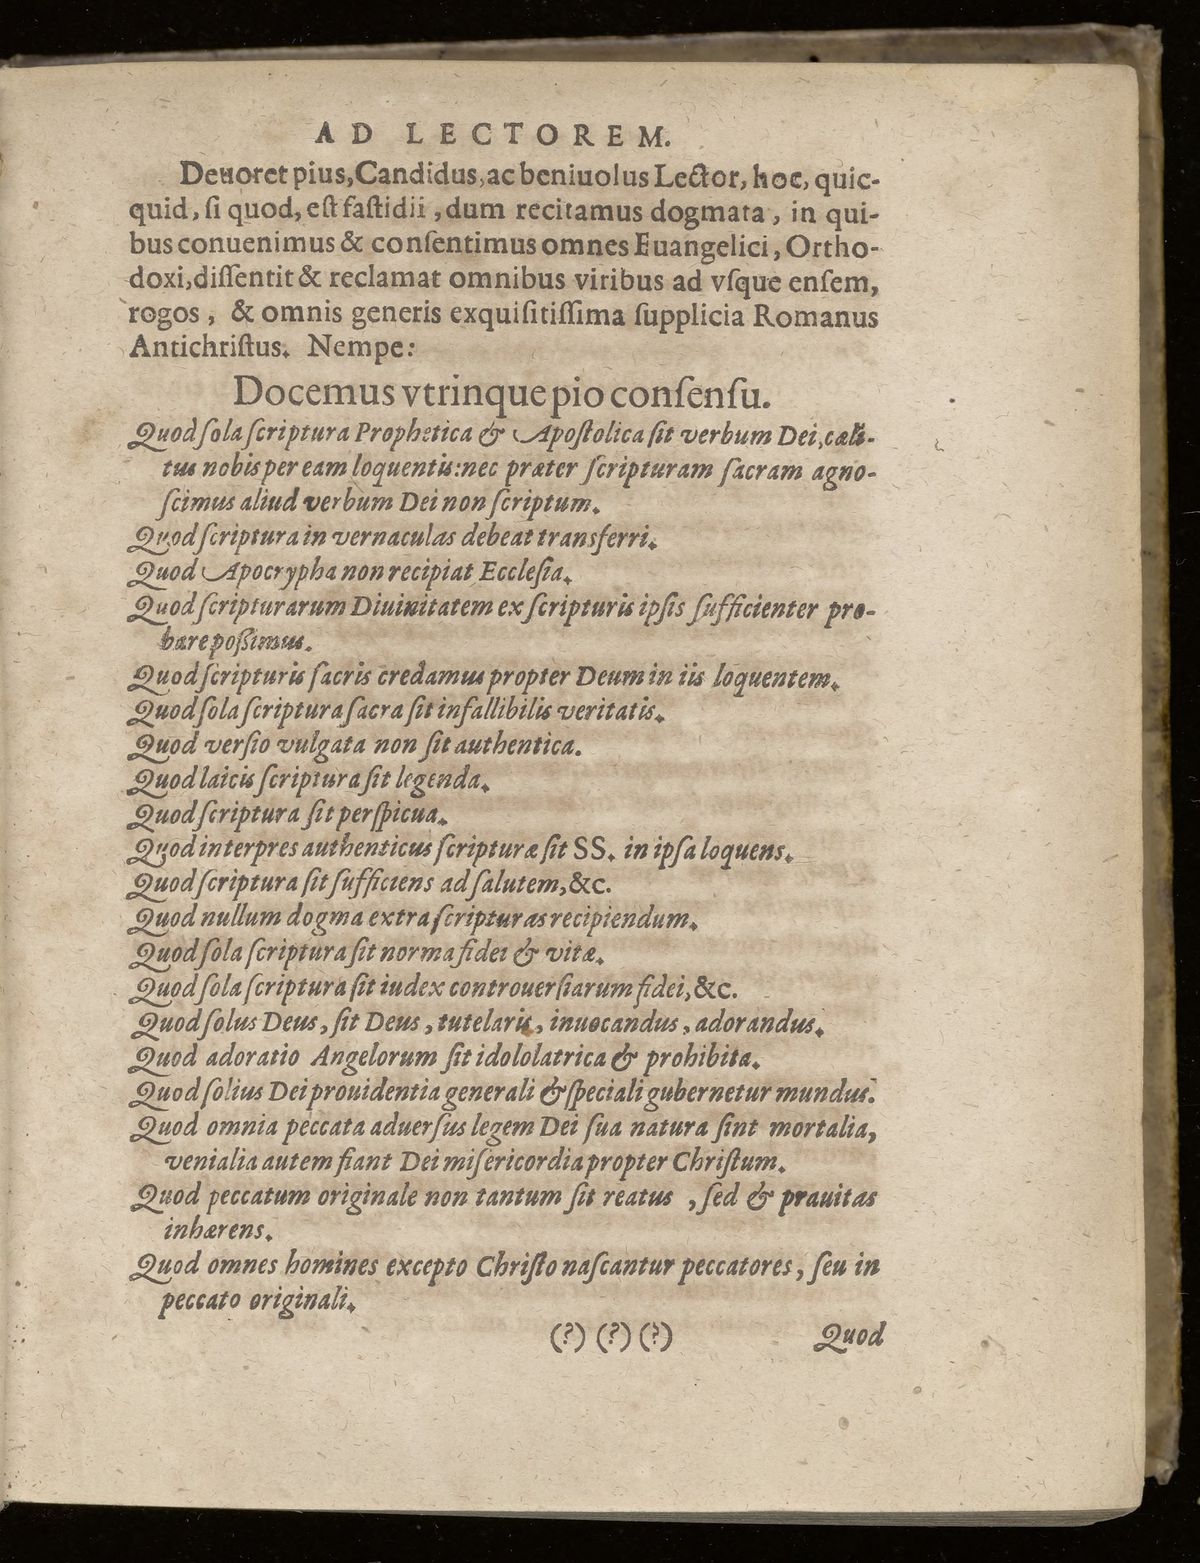 AD LECTOREM.
Deuoret pius, Candidus, ac beniuolus Lector, hoc, quic-
quid, ſi quod, eſt faſtidii, dum recitamus dogmata, in qui-
bus conuenimus & conſentimus omnes Euangelici, Ortho-
doxi, diſſentit & reclamat omnibus viribus ad vſque enſem,
rogos, & omnis generis exquiſitiſſima ſupplicia Romanus
Antichriſtus. Nempe:
Docemus vtrinque pio conſenſu.
Quod ſola ſcriptura Prophetica & Apoſtolica ſit verbum Dei, cæli-
tus nobis per eam loquentis: nec præter ſcripturam ſacram agno-
ſcimus aliud verbum Dei non ſcriptum.
Quod ſcriptura in vernaculas debeat transferri.
Quod Apocrypha non recipiat Eccleſia.
Quod ſcripturarum Diuinitatem ex ſcripturis ipſis ſufficienter pro-
bare poßimus.
Quod ſcripturis ſacris credamus propter Deum in iis loquentem.
Quod ſola ſcriptura ſacra ſit infallibilis veritatis.
Quod verſio vulgata non ſit authentica.
Quod laicis ſcriptura ſit legenda.
Quod ſcriptura ſit perſpicua.
Quod interpres authenticus ſcripturæ ſit SS. in ipſa loquens.
Quod ſcriptura ſit ſufficiens ad ſalutem, &c.
Quod nullum dogma extra ſcripturas recipiendum.
Quod ſola ſcriptura ſit norma fidei & vitæ.
Quod ſola ſcriptura ſit iudex controuerſiarum fidei, &c.
Quod ſolus Deus, ſit Deus, tutelaris, inuocandus, adorandus.
Quod adoratio Angelorum ſit idololatrica & prohibita.
Quod ſolius Dei prouidentia generali & ſpeciali gubernetur mundus.
Quod omnia peccata aduerſus legem Dei ſua natura ſint mortalia,
venialia autem fiant Dei miſericordia propter Chriſtum.
Quod peccatum originale non tantum ſit reatus, ſed & prauitas
inhærens.
Quod omnes homines excepto Chriſto naſcantur peccatores, ſeu in
peccato originali.
(?) (?) (?) Quod